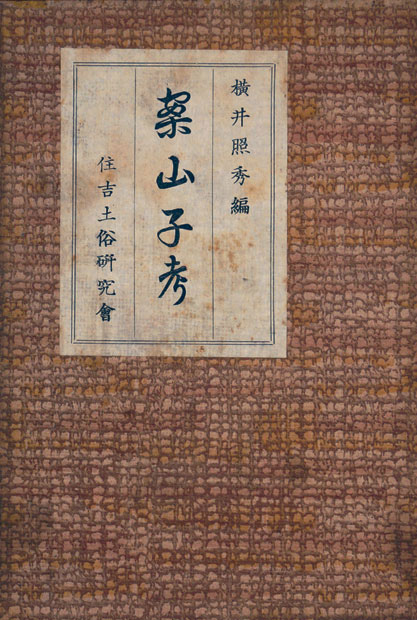 横井照秀編
案山子考
住吉土俗研究會